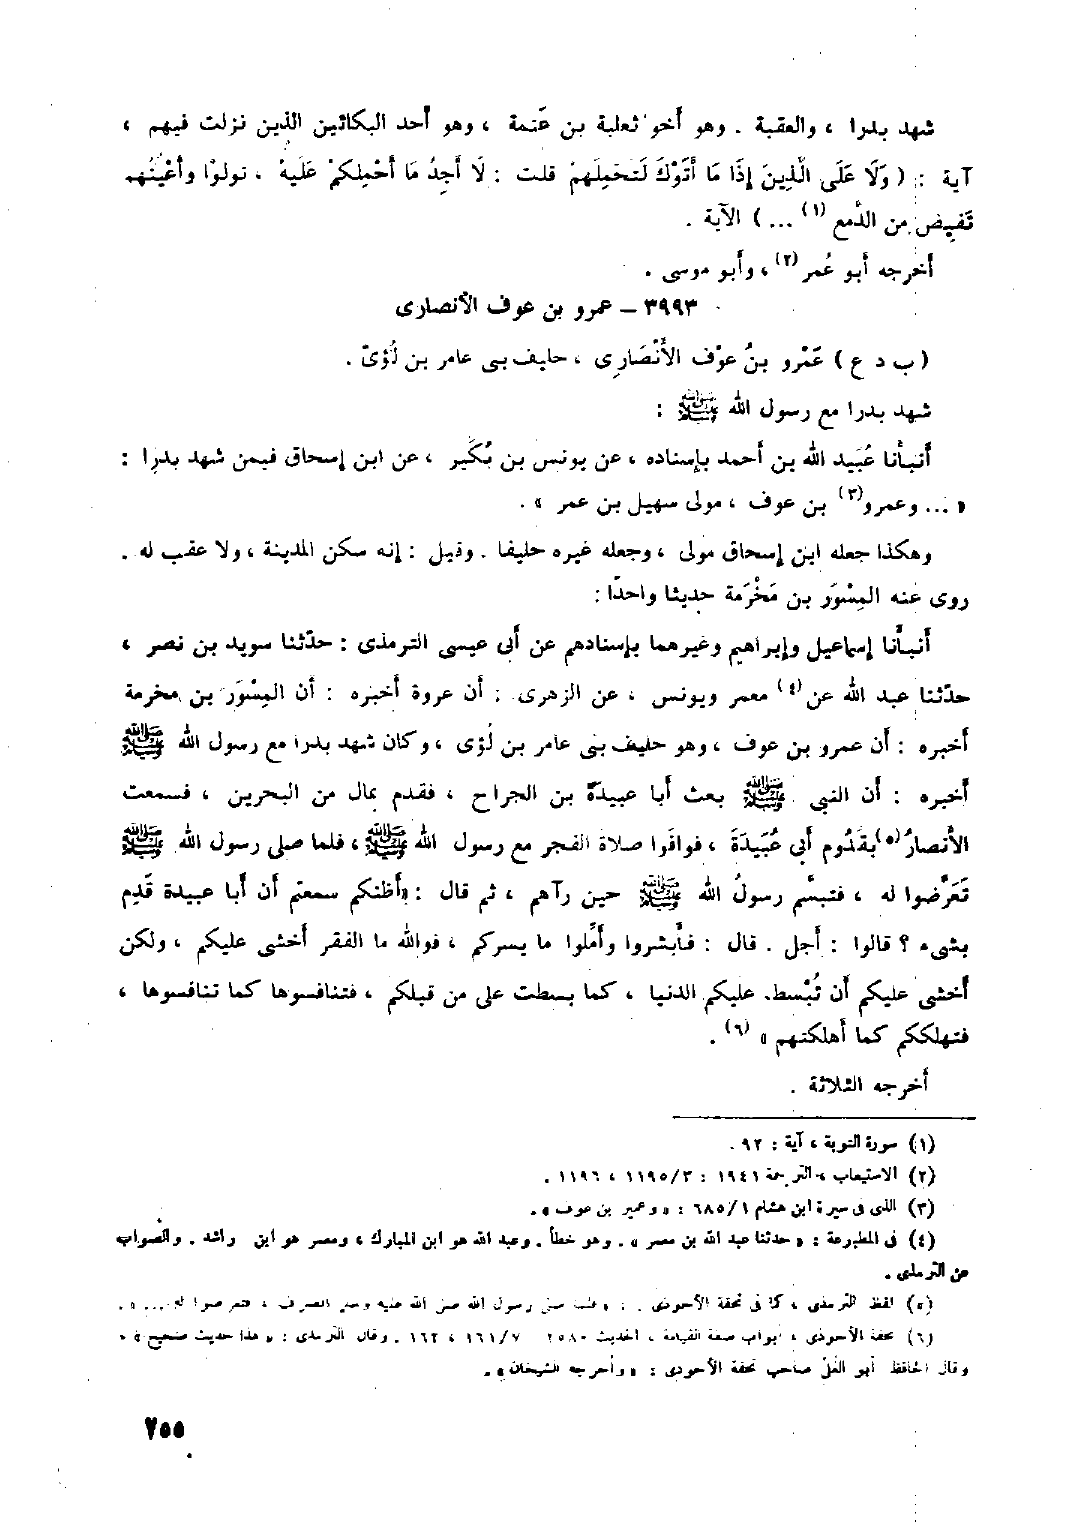 شهد بدرا ، والعقبة . وهو أخو ثعلبة بن عَنَمة ، وهو أحد البكائين الذين نزلت فيهم ،
آية : ( وَلَا عَلَى الَّذِينَ إِذَا مَا أَتَوْكَ لَتَحْمِلَهُمْ قلت : لَا أَجِدُ مَا أَحْمِلُكمْ عَلَيهَْ ، تولوْا وأعْيُنُهم
تَفِيض من الدَّمع (١) ... ) الآية .
أخرجه أبو عُمر (٢) ، وأبو موسى .
٣٩٩٣ – عمرو بن عوف الأنصارى
( ب د ع ) عَمْرو بنُ عوْف الأَنْصَارِى ، حليف بنى عامر بن لُؤىّ .
شهد بدرا مع رسول الله ﷺ :
أنبأنا عُبَيد الله بن أحمد بإسناده ، عن يونس بن بُكَير ، عن ابن إسحاق فيمن شهد بدرا :
« ... وعمرو (٣) بن عوف ، مولى سهيل بن عمر » .
وهكذا جعله ابن إسحاق مولى ، وجعله غيره حليفا . وقيل : إنه سكن المدينة ، ولا عقب له .
روى عنه المِسْوَر بن مَخْرَمة حديثا واحدًا :
أنبأنا إسماعيل وإبراهيم وغيرهما بإسنادهم عن أبى عيسى الترمذى : حدّثنا سويد بن نصر ،
حدّثنا عبد الله عن (٤) معمر ويونس ، عن الزهرى : أن عروة أخبره : أن المِسْوَر بن مخرمة
أخبره : أن عمرو بن عوف ، وهو حليف بنى عامر بن لُؤى ، وكان شهد بدرا مع رسول الله ﷺ
أخبره : أن النبي ﷺ بعث أبا عبيدة بن الجراح ، فقدم بمال من البحرين ، فسمعت
الأنصارُ (٥) بقدُوم أبى عُبَيدَةَ ، فوافَوا صلاة الفجر مع رسول الله ﷺ ، فلما صلى رسول الله ﷺ
تَعَرَّضوا له ، فتبسَّم رسولُ الله ﷺ حين رآهم ، ثم قال : «أظنكم سمعتم أن أبا عبيدة قَدِم
بشىء ؟ قالوا : أجل . قال : فأبشروا وأمِّلوا ما يسركم ، فوالله ما الفقر أخشى عليكم ، ولكن
أخشى عليكم أن تُبْسط عليكم الدنيا ، كما بسطت على من قبلكم ، فتنافسوها كما تنافسوها ،
فتهلككم كما أهلكتهم » (٦) .
أخرجه الثلاثة .
(١) سورة التوبة ، آية : ٩٢ .
(٢) الاستيعاب ، الترجمة ١٩٤١ : ٣/ ١١٩٥ ، ١١٩٦ .
(٣) الذى فى سيرة ابن هشام ١/ ٦٨٥ : « وعمير بن عوف » .
(٤) فى المطبوعة : « حدثنا عبد الله بن معمر » . وهو خطأ . وعبد الله هو ابن المبارك ، ومعمر هو ابن راشد . والصواب
عن الترمذى .
(٥) لفظ الترمذى ، كما فى تحفة الأحوذى : « فلما صلى رسول الله صلى الله عليه وسلم انصرف ، فتعرضوا له ... » .
(٦) تحفة الأحوذى ، أبواب صفة القيامة ، الحديث ٢٥٨٠ ٧/ ١٦١ ، ١٦٢ . وقال الترمذى : « هذا حديث صحيح » .
وقال الحافظ أبو العُلَى صاحب تحفة الأحوذى : « وأخرجه الشيخان » .
٢٥٥